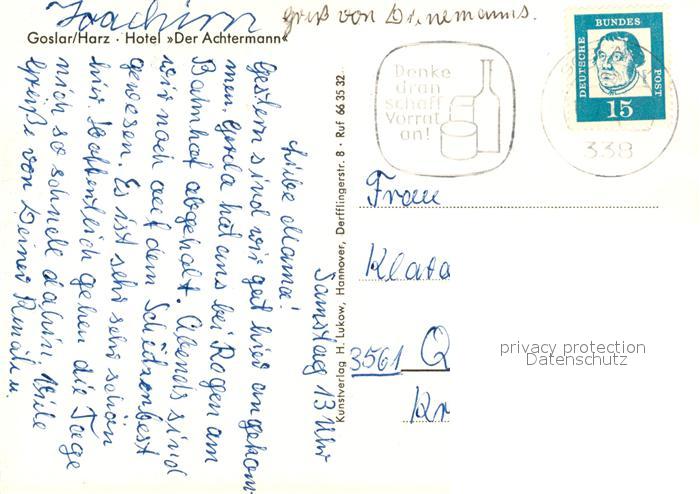 Joachim
Gruß von Dinemanns.
Goslar/Harz · Hotel »Der Achtermann«
Samstag 13 Uhr
Liebe Mama!
Gestern sind wir gut hier angekom-
men, Gerda hat uns bei Regen am
Bahnhof abgeholt. Abends sind
wir noch auf dem Schützenfest
gewesen. Es ist sehr sehr schön
hier. Hoffentlich gehen die Tage
nich so schnell dahin. Viele
Grüße von Deiner Renate u.
Kunstverlag H. Lukow, Hannover, Derfflingerstr. 8 · Ruf 66 35 32
Denke
dran
schaff
Vorrat
an!
DEUTSCHE BUNDES POST
15
338
Frau
Klara
3561 Q
Kr
privacy protection
Datenschutz